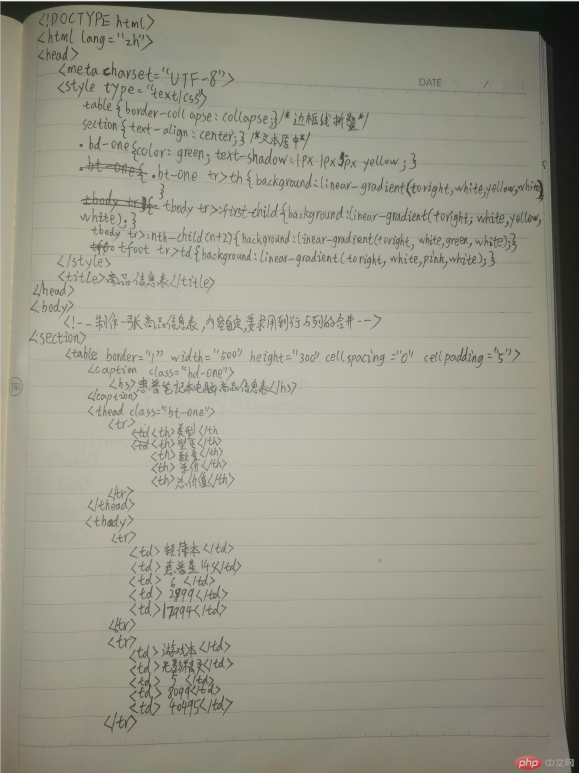 <!DOCTYPE html>
<html lang="zh">
<head>
<meta charset="UTF-8">
DATE / /
<style type="text/css">
table{border-collapse: collapse;}/*边框线折叠*/
section{text-align: center;} /*文本居中*/
.bd-one{color: green; text-shadow: 1px 1px 5px yellow;}
.bt-one{ .bt-one tr>th{background: linear-gradient(to right, white, yellow, white);
}
tbody tr{ tbody tr>:first-child{background: linear-gradient(to right, white, yellow,
white);}
tbody tr>:nth-child(n+2){background: linear-gradient(to right, white, green, white);}
tfoo tfoot tr>td{background: linear-gradient(to right, white, pink, white);}
</style>
<title>商品信息表</title>
</head>
<body>
<!--制作一张商品信息表,内容自定,要求用到行与列的合并-->
<section>
<table border="1" width="500" height="300" cellspacing="0" cellpadding="5">
<caption class="bd-one">
<h3>惠普笔记本电脑商品信息表</h3>
<caption>
<thead class="bt-one">
<tr>
<td <th>类型</th
<td <th>型号</th>
<th>数量</th>
<th>单价</th>
<th>总价值</th>
</tr>
</thead>
<tbody>
<tr>
<td>轻薄本</td>
<td>惠普星14s</td>
<td>6</td>
<td>2999</td>
<td>17994</td>
</tr>
<tr>
<td>游戏本</td>
<td>光影精灵</td>
<td>5</td>
<td>8099</td>
<td>40495</td>
</tr>
php 中文网